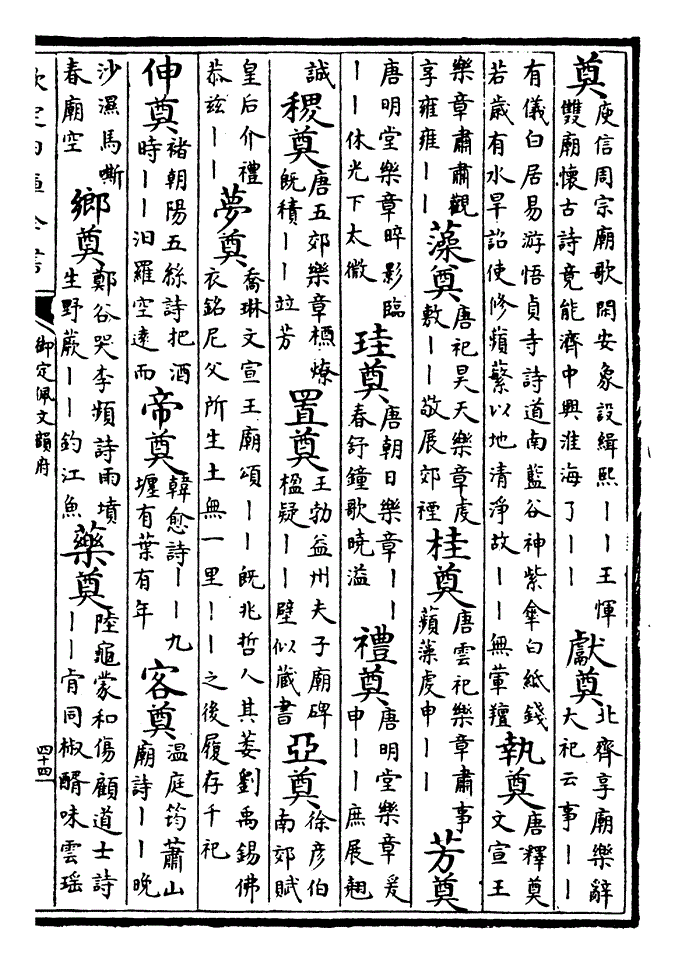 奠庾信周宗廟歌閟安象設緝熙丨丨王惲雙廟懷古詩竟能濟中興淮海了丨丨獻奠北齊享廟樂辭大祀云事丨丨
有儀白居易游悟貞寺詩道南藍谷神紫傘白紙錢若歲有水旱詔使修蘋蘩以地清淨故丨丨無葷羶執奠唐釋奠文宣王
樂章肅肅觀享雍雍丨丨藻奠唐祀昊天樂章虔敷丨丨敬展郊禋桂奠唐雲祀樂章肅事蘋藻虔申丨丨芳奠
唐明堂樂章晬影臨丨丨休光下太微珪奠唐朝日樂章丨丨春舒鐘歌曉溢禮奠唐明堂樂章爰申丨丨庶展翹
誠稷奠唐五郊樂章槱燎既積丨丨竝芳置奠王勃益州夫子廟碑楹疑丨丨壁似藏書亞奠徐彥伯南郊賦
皇后介禮恭茲丨丨夢奠喬琳文宣王廟頌丨丨既兆哲人其萎劉禹錫佛衣銘尼父所生土無一里丨丨之後履存千祀
伸奠褚朝陽五絲詩把酒時丨丨汨羅空遠而帝奠韓愈詩丨丨九壥有葉有年客奠温庭筠蕭山廟詩丨丨晚
沙濕馬嘶春廟空鄉奠鄭谷哭李頻詩雨墳生野蕨丨丨釣江魚藥奠陸龜蒙和傷顧道士詩丨丨肯同椒醑味雲瑶
欽定四庫全書
御定佩文韻府
四十四